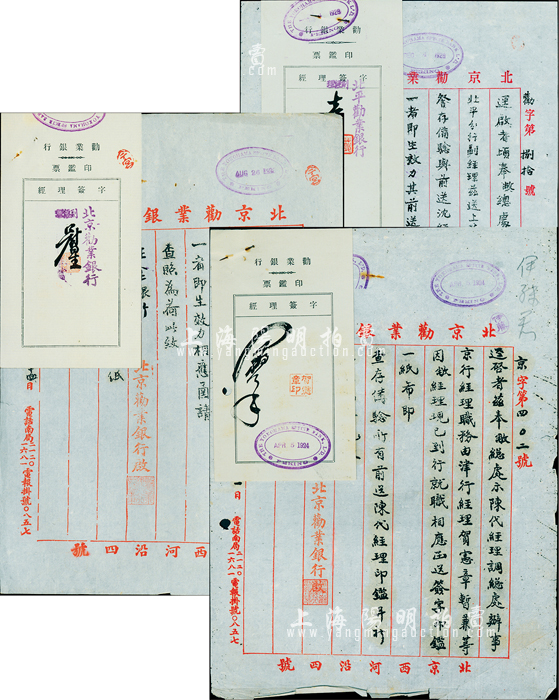 THE YOKOHAMA SPECIE BANK, LTD.
行銀業勸
票鑑印
字簽理經
北平勸業銀行
北京勸業
勸字第捌拾號
逕啟者頃奉敝總處
北平分行副經理茲送上
督存備驗與前送沈經
一者即生效力其前送
行銀業勸
票鑑印
字簽理經
北京勸業銀行
北京勸業銀
一者即生效力相應函請
查照為荷此致
北京勸業銀行啟
電話南局二一二〇 一六八一 電報掛號〇八五七
西河沿四號
行銀業勸
票鑑印
字簽理經
THE YOKOHAMA SPECIE BANK, LTD.
APR 5 1924
PEKING
北京勸業銀
京字第四〇二號
逕啓者茲奉敝總處示陳代經理調總處辦事
京行經理職務由津行經理賀憲章暫兼等
因敝經理現已到行就職相應函送簽字印鑑
一紙希即
查存備驗所有前送陳代經理印鑑
北京勸業銀行啟
電話南局二一二〇 一六八一 電報掛號〇八五七
北京西河沿四號
上海陽明拍賣
www.yangmingauction.com